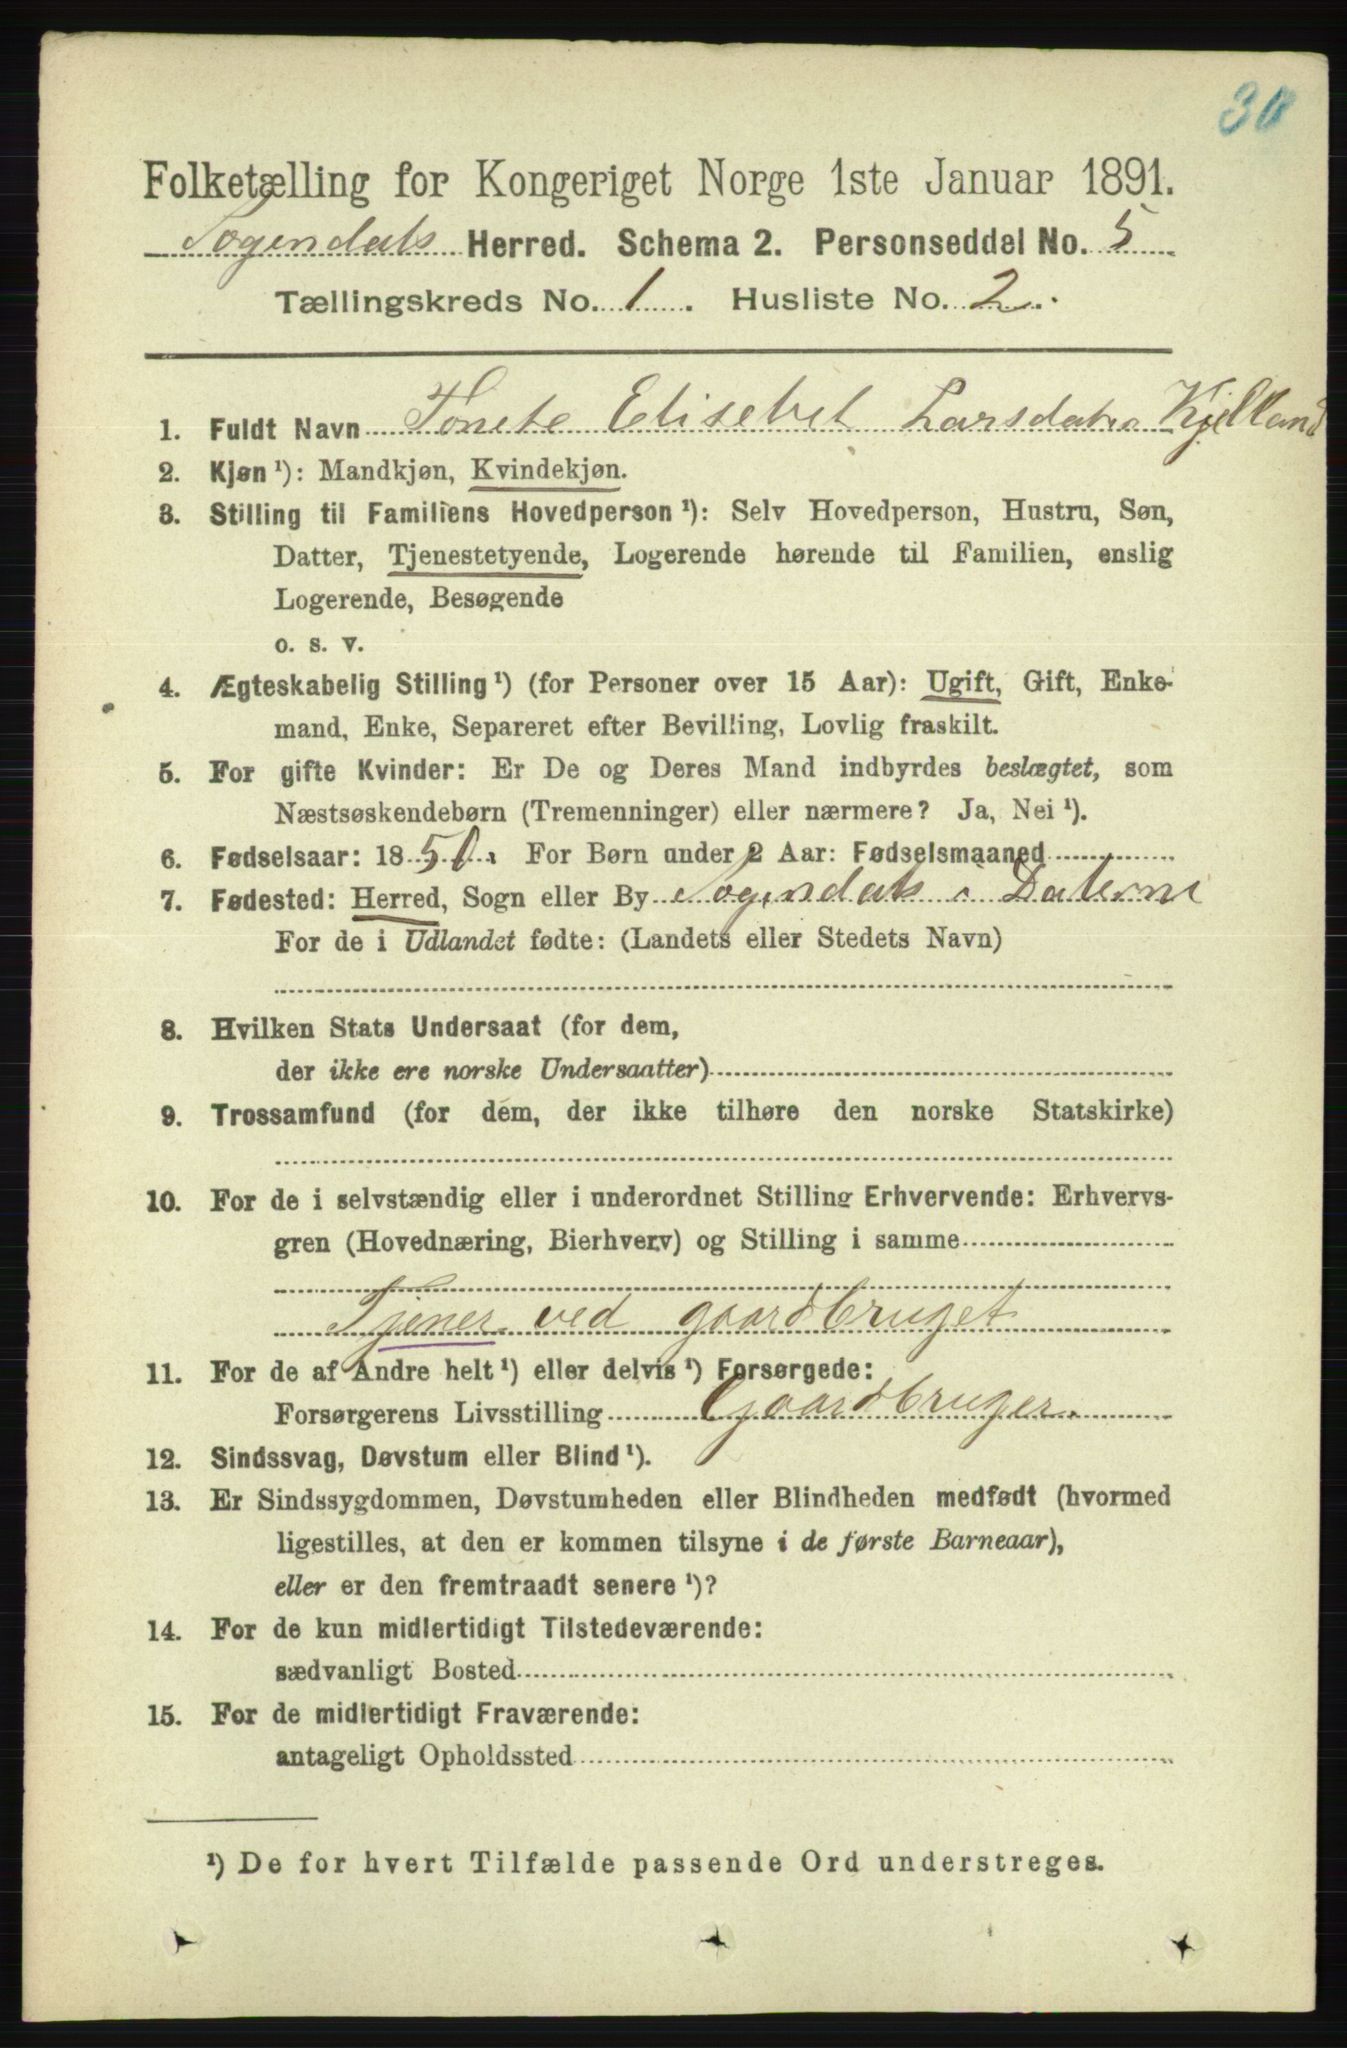 30
Folketælling for Kongeriget Norge 1ste Januar 1891.
Sogendals Herred. Schema 2. Personseddel No. 5
Tællingskreds No. 1. Husliste No. 2.
1. Fuldt Navn Tonete Elisebet Larsdater Kjelland
2. Kjøn ¹): Mandkjøn, Kvindekjøn.
3. Stilling til Familiens Hovedperson ¹): Selv Hovedperson, Hustru, Søn,
Datter, Tjenestetyende, Logerende hørende til Familien, enslig
Logerende, Besøgende
o. s. v.
4. Ægteskabelig Stilling ¹) (for Personer over 15 Aar): Ugift, Gift, Enke-
mand, Enke, Separeret efter Bevilling, Lovlig fraskilt.
5. For gifte Kvinder: Er De og Deres Mand indbyrdes beslægtet, som
Næstsøskendebørn (Tremenninger) eller nærmere? Ja, Nei ¹).
6. Fødselsaar: 1850. For Børn under 2 Aar: Fødselsmaaned
7. Fødested: Herred, Sogn eller By Sogendals i Dalerne
For de i Udlandet fødte: (Landets eller Stedets Navn)
8. Hvilken Stats Undersaat (for dem,
der ikke ere norske Undersaatter)
9. Trossamfund (for dem, der ikke tilhøre den norske Statskirke)
10. For de i selvstændig eller i underordnet Stilling Erhvervende: Erhvervs-
gren (Hovednæring, Bierhverv) og Stilling i samme
Tjener ved gaardbruget
11. For de af Andre helt ¹) eller delvis ¹) Forsørgede:
Forsørgerens Livsstilling Gaardbruger.
12. Sindssvag, Døvstum eller Blind ¹).
13. Er Sindssygdommen, Døvstumheden eller Blindheden medfødt (hvormed
ligestilles, at den er kommen tilsyne i de første Barneaar),
eller er den fremtraadt senere ¹)?
14. For de kun midlertidigt Tilstedeværende:
sædvanligt Bosted
15. For de midlertidigt Fraværende:
antageligt Opholdssted
¹) De for hvert Tilfælde passende Ord understreges.